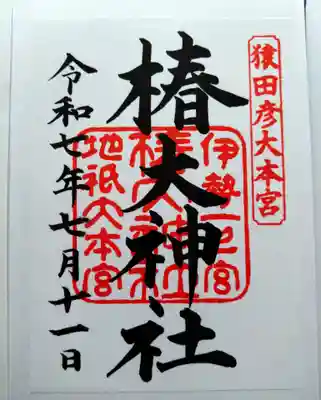 猿田彦大本宮
椿大神社
伊勢一宮
椿大神社
地祇大本宮
令和七年七月十一日